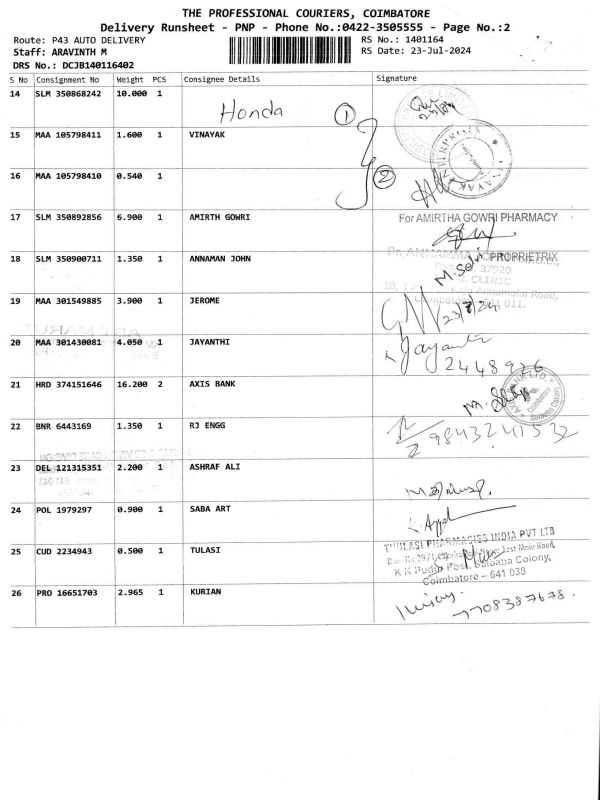 THE PROFESSIONAL COURIERS, COIMBATORE
Delivery Runsheet - PNP - Phone No.:0422-3505555 - Page No.:2
Route: P43 AUTO DELIVERY RS No.: 1401164
Staff: ARAVINTH M RS Date: 23-Jul-2024
DRS No.: DCJB140116402
S No Consignment No Weight PCS Consignee Details Signature
14 SLM 350868242 10.000 1 Honda 1
15 MAA 105798411 1.600 1 VINAYAK
16 MAA 105798410 0.540 1 2
17 SLM 350892856 6.900 1 AMIRTH GOWRI For AMIRTHA GOWRI PHARMACY
PROPRIETRIX
18 SLM 350900711 1.350 1 ANNAMAN JOHN
37920
CLINIC
19 MAA 301549885 3.900 1 JEROME 23/7/24
20 MAA 301430081 4.050 1 JAYANTHI Jayanthi
2448926
21 HRD 374151646 16.200 2 AXIS BANK
22 BNR 6443169 1.350 1 RJ ENGG 9843241532
23 DEL 121315351 2.200 1 ASHRAF ALI
24 POL 1979297 0.900 1 SABA ART
25 CUD 2234943 0.500 1 TULASI THULASI PHARMACIES INDIA PVT LTD
K K Pudur Post, Saibaba Colony,
Coimbatore - 641 038
26 PRO 16651703 2.965 1 KURIAN
7708387678.